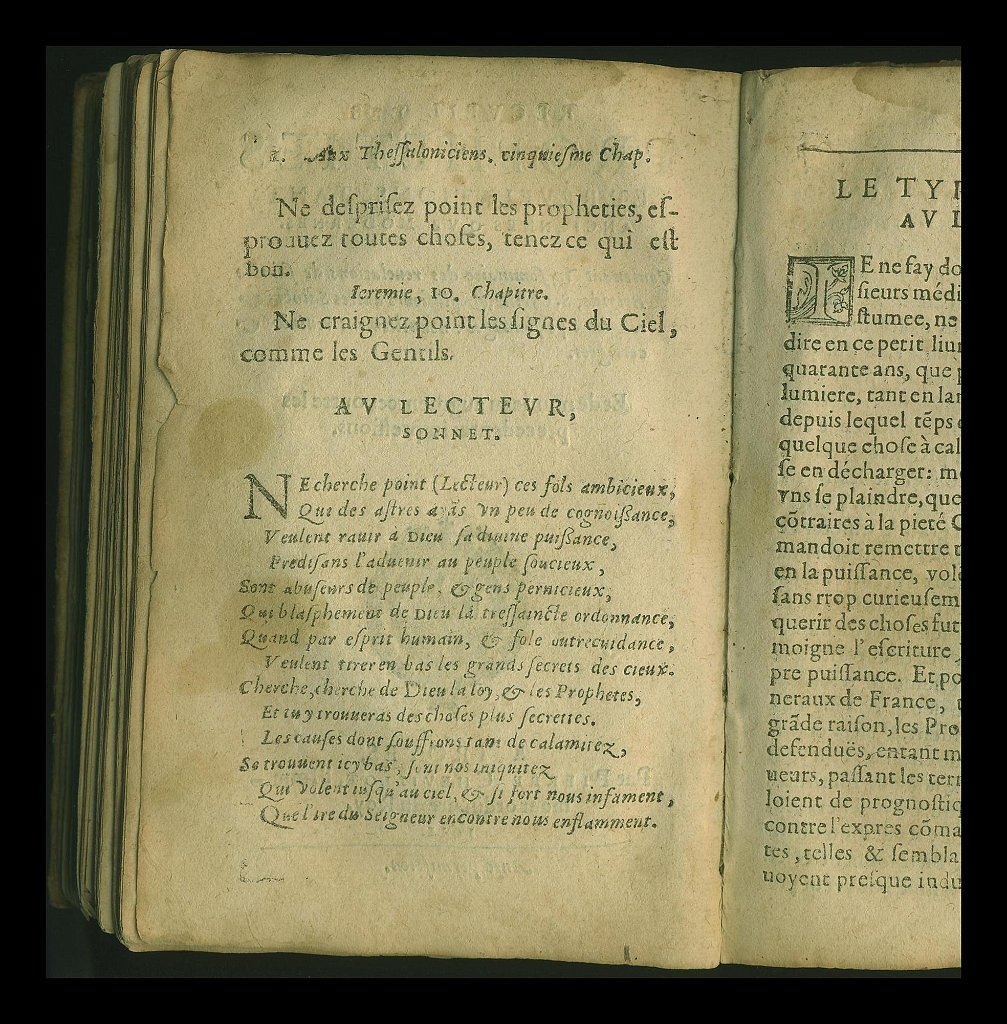 1. Aux Thessaloniciens. cinquiesme Chap.
Ne desprisez point les propheties, es-
prouuez toutes choses, tenez ce qui est
bon.
Ieremie, 10. Chapitre.
Ne craignez point les signes du Ciel,
comme les Gentils.
AV LECTEVR,
SONNET.
NE cherche point (Lecteur) ces fols ambicieux,
Qui des astres ayãs vn peu de cognoissance,
Veulent rauir à DIEU sa diuine puissance,
Predisans l'aduenir au peuple soucieux,
Sont abuseurs de peuple, & gens pernicieux,
Qui blasphement de DIEU la tressaincte ordonnance,
Quand par esprit humain, & fole outrecuidance,
Veulent tirer en bas les grands secrets des cieux.
Cherche, cherche de Dieu la loy, & les Prophetes,
Et tu y trouueras des choses plus secrettes.
Les causes dont souffrons tant de calamitez,
Se trouuent icy bas, sont nos iniquitez
Qui volent iusqu'au ciel, & si fort nous infament,
Que l'ire du Seigneur encontre nous enflamment.
LE TYP
AV L
IE ne fay do
sieurs médi
stumee, ne
dire en ce petit liu
quarante ans, que
lumiere, tant en lan
depuis lequel tẽps
quelque chose à cal
se en décharger: m
vns se plaindre, que
cõtraires à la pieté C
mandoit remettre
en la puissance, vol
sans rrop curieusem
querir des choses fut
moigne l'escriture
pre puissance. Et po
neraux de France,
grãde raison, les Pro
defenduës, entant m
ueurs, passant les ter
loient de prognostiq
contre l'expres cõma
tes, telles & sembla
uoyent presque indu